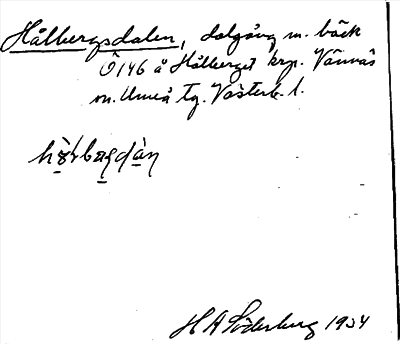 Hålbergsdalen, dalgång m. bäck
Ö 146 å Hålberget krp. Vännäs
m. Umeå tg. Västerb. l.
H A Söderberg 1934